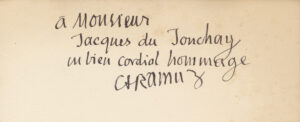 à Monsieur
Jacques du Jonchay
un bien cordial hommage
C F Ramuz